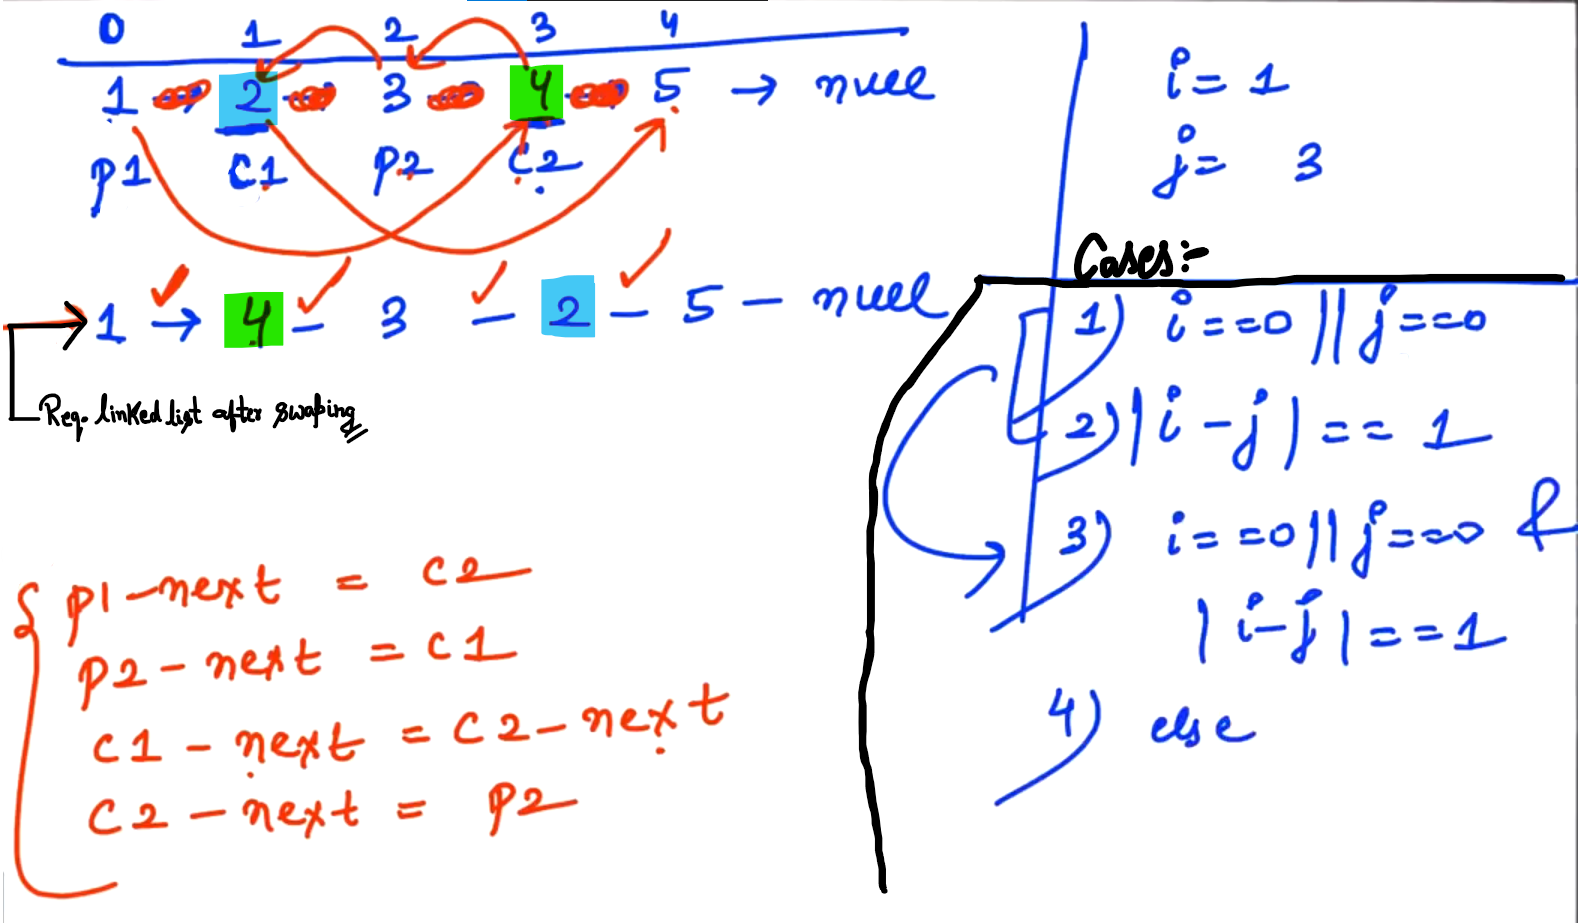 0 1 2 3 4
1 2 3 4 5 → null
p1 C1 p2 C2
1 → 4 - 3 - 2 - 5 - null
Req. linked list after swaping
p1-next = c2
p2-next = c1
c1-next = c2-next
c2-next = p2
i = 1
j = 3
Cases:-
1) i==0 || j==0
2) |i-j| == 1
3) i==0 || j==0 &
|i-j| ==1
4) else